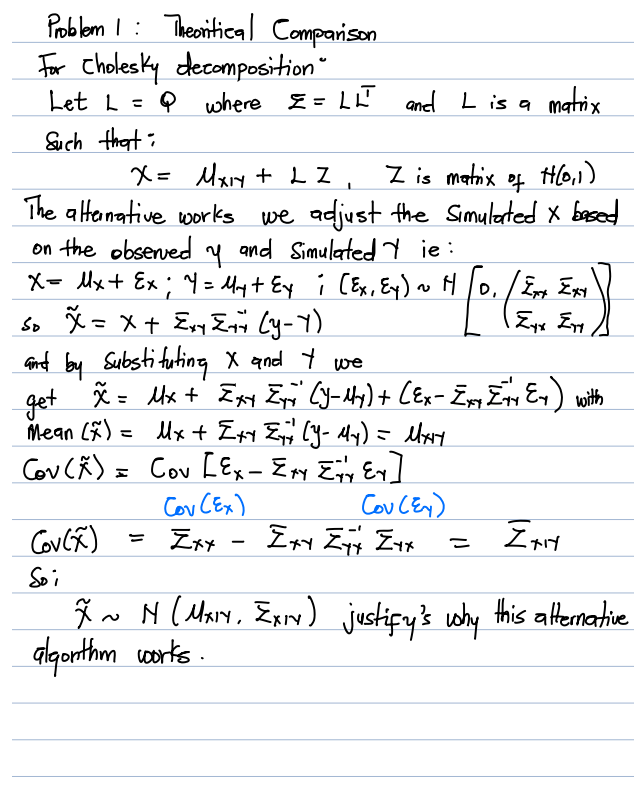 Problem 1 : Theoritical Comparison
For Cholesky decomposition
Let L = Q where Σ = LL^T and L is a matrix
Such that :
X = μ_{X|Y} + L Z , Z is matrix of N(0,1)
The alternative works we adjust the simulated X based
on the observed y and simulated Y ie :
X = μ_X + ε_X ; Y = μ_Y + ε_Y ; (ε_X, ε_Y) ~ N [0, (Σ_XX Σ_XY
Σ_YX Σ_YY)]
so X̃ = X + Σ_XY Σ_YY^{-1} (y-Y)
and by substituting X and Y we
get X̃ = μ_X + Σ_XY Σ_YY^{-1} (y-μ_Y) + (ε_X - Σ_XY Σ_YY^{-1} ε_Y) with
Mean (X̃) = μ_X + Σ_XY Σ_YY^{-1} (y-μ_Y) = μ_{X|Y}
Cov(X̃) = Cov [ε_X - Σ_XY Σ_YY^{-1} ε_Y]
Cov(ε_X) Cov(ε_Y)
Cov(X̃) = Σ_XX - Σ_XY Σ_YY^{-1} Σ_YX = Σ_{X|Y}
So ;
X̃ ~ N (μ_{X|Y}, Σ_{X|Y}) justify's why this alternative
algorithm works.